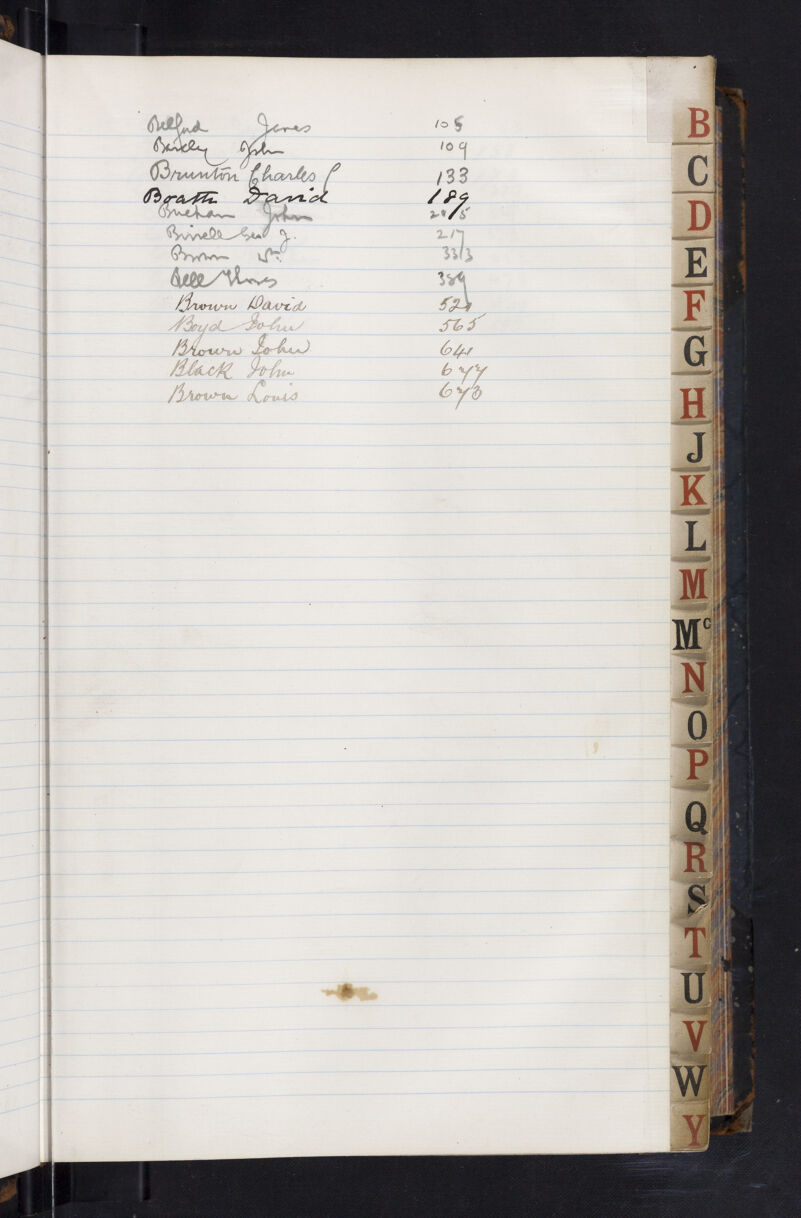 Belford James 105
Barclay John 109
Brunton Charles C 133
Boath David 189
Buchan John 205
Birrell Geo J. 217
Brown Wm 333
Bell Thomas 389
Brown David 521
Boyd John 565
Brown John 641
Black John 677
Brown Louis 673
B
C
D
E
F
G
H
J
K
L
M
Mc
N
O
P
Q
R
S
T
U
V
W
Y